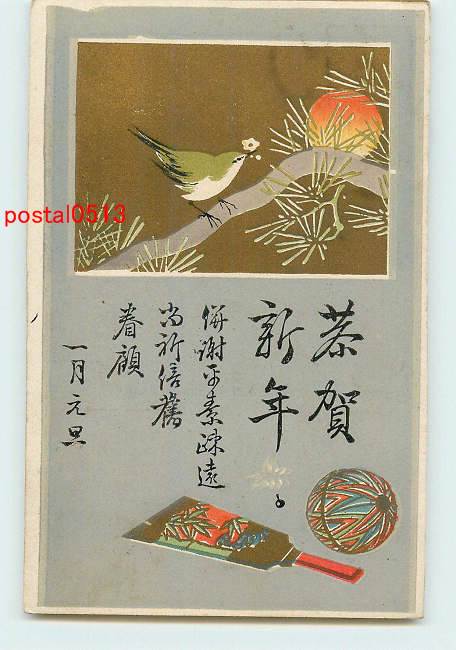 恭賀
新年
併謝平素疎遠
尚祈倍舊
眷顧
一月元旦
postal0513